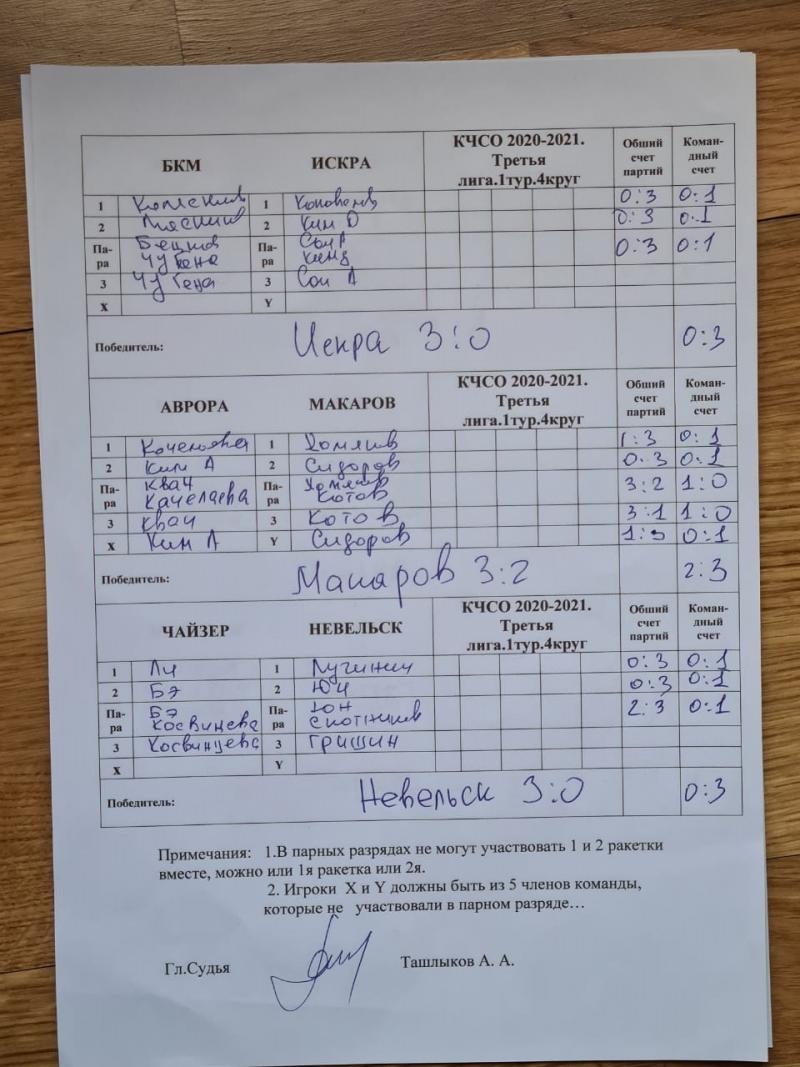 БКМ ИСКРА КЧСО 2020-2021. Третья лига.1тур.4круг Обший счет партий Коман-дный счет
1 1 0:3 0:1
2 2 Ким О 0:3 0:1
Па-ра Па-ра 0:3 0:1
Чу Гена
3 Чу Гена 3 Сон А
X Y
Победитель: Искра 3:0 0:3
АВРОРА МАКАРОВ КЧСО 2020-2021. Третья лига.1тур.4круг Обший счет партий Коман-дный счет
1 1 Хомяков 1:3 0:1
2 Ким А 2 Сидоров 0:3 0:1
Па-ра Квач Па-ра Хомяков 3:2 1:0
Качелаева Котов
3 Квач 3 Котов 3:1 1:0
X Ким А Y Сидоров 1:3 0:1
Победитель: Макаров 3:2 2:3
ЧАЙЗЕР НЕВЕЛЬСК КЧСО 2020-2021. Третья лига.1тур.4круг Обший счет партий Коман-дный счет
1 Ли 1 0:3 0:1
2 Бэ 2 0:3 0:1
Па-ра Бэ Па-ра Юн 2:3 0:1
Косвинцева
3 Косвинцева 3 Гришин
X Y
Победитель: Невельск 3:0 0:3
Примечания: 1.В парных разрядах не могут участвовать 1 и 2 ракетки
вместе, можно или 1я ракетка или 2я.
2. Игроки X и Y должны быть из 5 членов команды,
которые не участвовали в парном разряде…
Гл.Судья Ташлыков А. А.